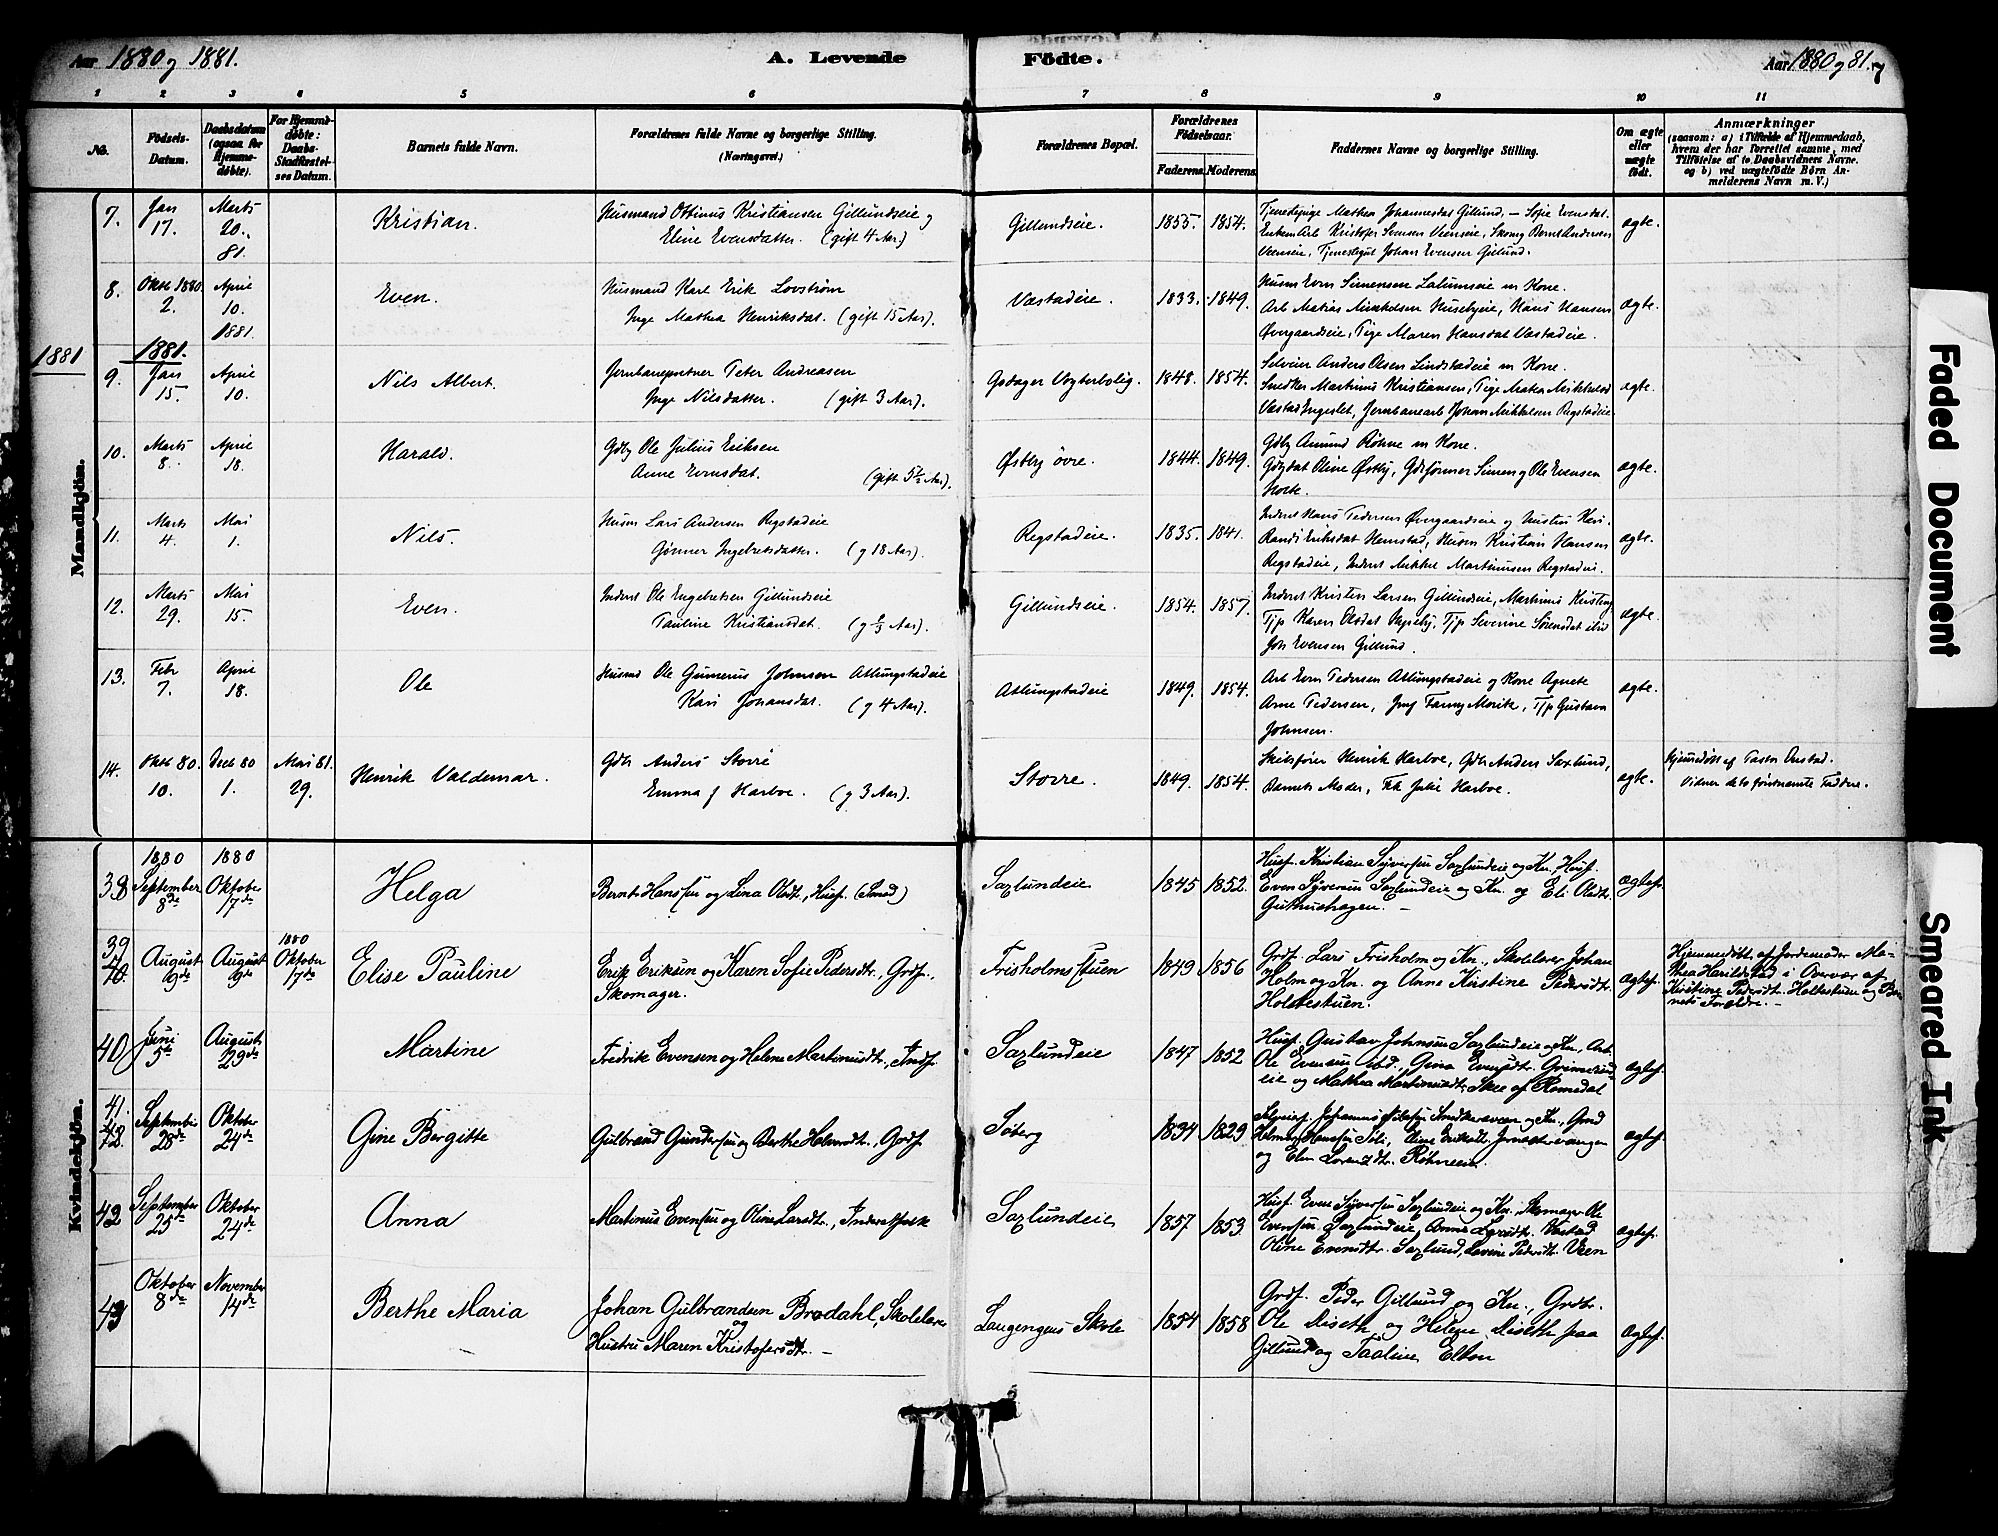 Aar 1880 og 1881.
A. Levende Födte.
Aar 1880 og 81. 7
1 2 3 4 5 6 7 8 9 10 11
No.
Födsels-Datum.
Daabsdatum (ogsaa for Hjemme-döbte).
For Hjemme-döbte: Daabs-Stadfæstel-ses Datum.
Barnets fulde Navn.
Forældrenes fulde Navne og borgerlige Stilling.
(Næringsvei.)
Forældrenes Bopæl.
Forældrenes Födselsaar.
Faderens. Moderens.
Faddernes Navne og borgerlige Stilling.
Om ægte eller uægte födt.
Anmærkninger
(saasom: a) i Tilfælde af Hjemmedaab, hvem der har forrettet samme, med Tilföielse af to Daabsvidners Navne. og b) ved uægtefödte Börn An-melderens Navn m. V.)
Mandkjön.
7. Jan 17. Marts 20. 81. Kristian. Husmand Ottinus Kristiansen Gillundseie og
Eline Evensdatter. (gift 4 Aar) Gillundseie. 1855. 1854. Tjenestepige Mathea Johannesdat Gillund, – Sofie Evensdat.
Veenseie, Tjenestegut Johan Evensen Gillund. ægte.
8. Oktb 1880. 2. April 10. 1881. Even. Husmand Karl Erik Lovstrøm
Inge Mathea Henriksdat. (gift 15 Aar). Vastadeie. 1833. 1849. Husm Even Simensen Lalumseie m Kone.
Arb Matias Mikkelsen Husebyeie, Hans Hansen
Øvergaardseie, Pige Maren Hansdat Vastadeie. ægte.
1881
1881.
9. Jan 15. April 10. Nils Albert. Jernbanepudser Peter Andreasen
Inge Nilsdatter. (gift 3 Aar). Opdager Vogterbolig. 1848. 1854. Selveier Anders Olsen Lindstadeie m Kone.
Snedker Martinus Kristiansen, Pige Mathea Mikkelsd
Vastad Ingeslet, Jernbanearb Johan Mikkelsen Rogstadeie ægte.
10. Marts 8. April 18. Harald. Gdbr Ole Julius Eriksen
Anne Evensdat. (gift 5½ Aar). Østby øvre. 1844. 1849. Gdbr Amund Røhne m Kone.
Gdbrdat Oline Østby, Gdrsønner Simen og Ole Evensen
Horte. ægte.
11. Marts 4. Mai 1. Nils. Husm Lars Andersen Rogstadeie
Gønner Ingebretsdatter. (g 18 Aar). Rogstadeie. 1835. 1841. Inderst Hans Pedersen Øvergaardseie og Hustru Kari.
Randi Eriksdat Hemstad, Husm Kristian Hansen
Rogstadeie, Inderst Mikkel Martinusen Rogstadeie. ægte.
12. Marts 29. Mai 15. Even. Inderst Ole Engebretsen Gillundseie
Pauline Kristiansdat. Gillundseie. 1854. 1857. Inderst Kristen Larsen Gillundseie, Martinus
Tjp Karen Olsdat Nyseby, Tjp Severine Sørensdat
Joh Evensen Gillund. ægte.
13. Febr 7. April 18. Ole Husmd Ole Gunerus Johnsen Atlungstadeie
Kari Johansdat. (g 4 Aar). Atlungstadeie 1849. 1854. Arb Even Pedersen Atlungstadeie og Kone Agnete
Arne Pedersen, Jmf Fanny Morik, Tjp Gustava
Johnsen. ægte.
14. Oktb 80. 10. Decb 80 1. Mai 81. 29. Henrik Valdemar. Gdbr Anders Stovre
Emma f Harboe. (g 3 Aar). Stovre. 1849. 1854. Skibsfører Henrik Harboe, Gdbr Anders Saxlund,
Barnets Moder, Frk Julie Harboe. ægte. Hjemdøbt af Pastor Onstad.
Vidner de to førstnævnte Faddere.
Kvindekjön.
38 1880 September 8de 1880 Oktober 17de Helga Bernt Hanssen og Lina Olsdt., Husf. (Smed) Saxlundeie 1845 1852. Husf. Kristian Syversen Saxlundeie og Kn., Husf.
Even Syversen Saxlundeie og Kn. og Eli Olsdtr.
Guthushagen. – ægtef.
39 40. August 9de August 9de 1880 Oktober 17de Elise Pauline Erik Eriksen og Karen Sofie Pedersdtr., Grdf.,
Skomager. Frisholmsstuen 1849 1856 Grdf. Lars Frisholm og Kn., Skolelærer Johan
Holm og Kn. og Anne Kirstine Pedersdtr.
Holtestuen. ægtef. Hjemmedøbt af Jordemoder Ma-
thea Harildstad i Overvær af
Kirstine Pedersdt. Holtestuen og Bar-
nets Forældre. –
40 Juni 5te August 29de Martine Fredrik Evensen og Helene Martinusdtr., Indf. Saxlundeie 1847 1852 Husf. Gustav Johnsen Saxlundeie og Kn., Arb.
Ole Evensen ibd., Gina Evensdtr. Grimerud-
eie og Mathea Martinusdtr. Skee af Romedal ægtef.
41. 42. September 28de Oktober 24de Gine Bergitte Gulbrand Gundersen og Berthe Halvordtr., Grdf. Søberg 1834 1829 Selveierf. Johannes
og Elen Lorenzdtr. Røhneen. ægtef.
42 September 25de Oktober 24de Anna Martinus Evensen og Oline Larsdtr., Inderstfolk Saxlundeie 1857 1853. Husf. Even Syversen Saxlundeie og Kn., Skomager Ole
Evensen Saxlundeie, Anne Larsdtr. Vastad
Oline Evensdtr. Saxlund, Lovine Pedersdtr. Veen ægtef.
43 Oktober 8de November 14de Berthe Maria Johan Gulbrandsen Brodahl, Skolelærer
og
Hustru Maren Kristofersdtr. – Laugengens Skole 1854 1858 Grdf. Peder Gillund og Kn., Grdbr.
Ole Diseth og Helene Diseth paa
Gillund og Pauline Elton ægtef.
Faded Document
Smeared Ink